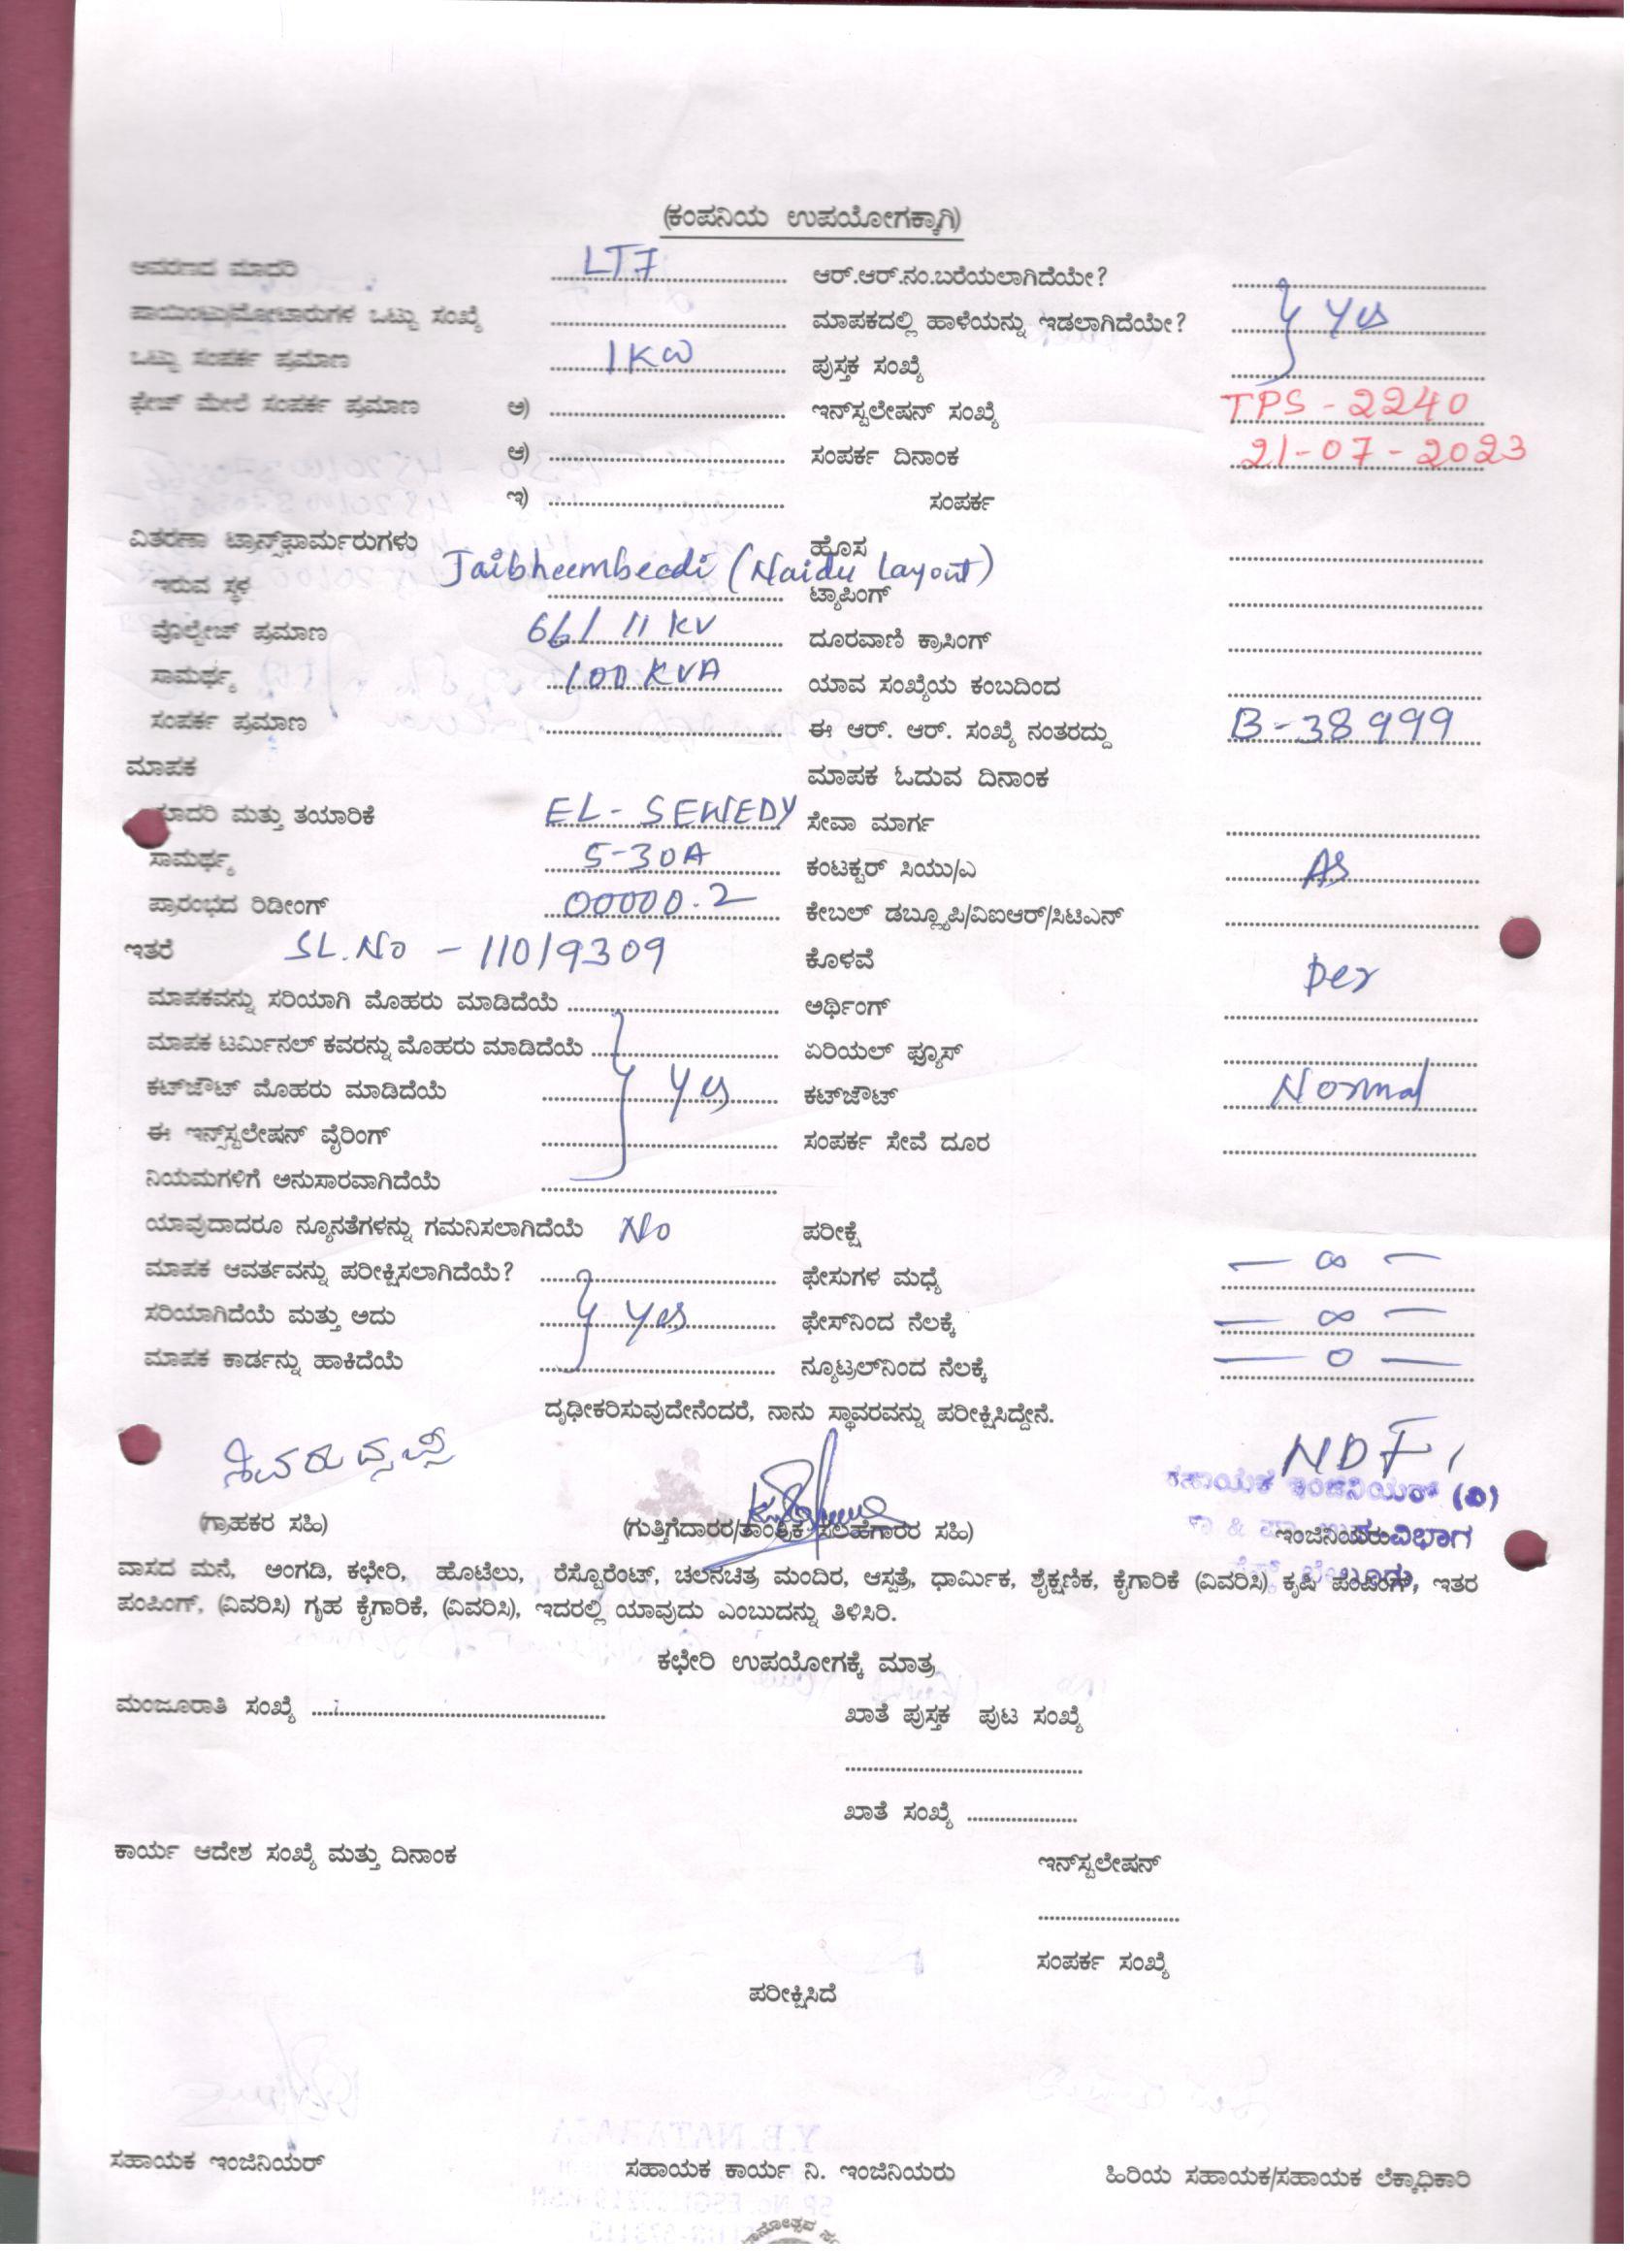 (ಕಂಪನಿಯ ಉಪಯೋಗಕ್ಕಾಗಿ)
ಆವರಣದ ಮಾದರಿ LT7 ಆರ್.ಆರ್.ನಂ.ಬರೆಯಲಾಗಿದೆಯೇ?
ಪಾಯಿಂಟು/ಮೋಟಾರುಗಳ ಒಟ್ಟು ಸಂಖ್ಯೆ ಮಾಪಕದಲ್ಲಿ ಹಾಳೆಯನ್ನು ಇಡಲಾಗಿದೆಯೇ? Yes
ಒಟ್ಟು ಸಂಪರ್ಕ ಪ್ರಮಾಣ 1KW ಪುಸ್ತಕ ಸಂಖ್ಯೆ
ಫೇಜ್ ಮೇಲೆ ಸಂಪರ್ಕ ಪ್ರಮಾಣ ಅ) ಇನ್‌ಸ್ಟಲೇಷನ್ ಸಂಖ್ಯೆ TPS-2240
ಆ) ಸಂಪರ್ಕ ದಿನಾಂಕ 21-07-2023
ಇ) ಸಂಪರ್ಕ
ವಿತರಣಾ ಟ್ರಾನ್ಸ್‌ಫಾರ್ಮರುಗಳು ಹೊಸ
ಇರುವ ಸ್ಥಳ Jaibheembeedi (Naidu Layout) ಟ್ಯಾಪಿಂಗ್
ವೊಲ್ಟೇಜ್ ಪ್ರಮಾಣ 66/11 KV ದೂರವಾಣಿ ಕ್ರಾಸಿಂಗ್
ಸಾಮರ್ಥ್ಯ 100 KVA ಯಾವ ಸಂಖ್ಯೆಯ ಕಂಬದಿಂದ
ಸಂಪರ್ಕ ಪ್ರಮಾಣ ಈ ಆರ್. ಆರ್. ಸಂಖ್ಯೆ ನಂತರದ್ದು B-38999
ಮಾಪಕ ಮಾಪಕ ಓದುವ ದಿನಾಂಕ
ಮಾದರಿ ಮತ್ತು ತಯಾರಿಕೆ EL-SEWEDY ಸೇವಾ ಮಾರ್ಗ
ಸಾಮರ್ಥ್ಯ 5-30A ಕಂಟಕ್ಟರ್ ಸಿಯು/ಎ AS
ಪ್ರಾರಂಭದ ರಿಡೀಂಗ್ 00000.2 ಕೇಬಲ್ ಡಬ್ಲ್ಯೂಪಿ/ವಿಐಆರ್/ಸಿಟಿಎನ್
ಇತರೆ SL.No - 11019309 ಕೊಳವೆ Per
ಮಾಪಕವನ್ನು ಸರಿಯಾಗಿ ಮೊಹರು ಮಾಡಿದೆಯೆ ಅರ್ಥಿಂಗ್
ಮಾಪಕ ಟರ್ಮಿನಲ್ ಕವರನ್ನು ಮೊಹರು ಮಾಡಿದೆಯೆ ಏರಿಯಲ್ ಫ್ಯೂಸ್
ಕಟ್‌ಔಟ್ ಮೊಹರು ಮಾಡಿದೆಯೆ Yes ಕಟ್‌ಔಟ್ Normal
ಈ ಇನ್ಸ್‌ಸ್ಟಲೇಷನ್ ವೈರಿಂಗ್ ಸಂಪರ್ಕ ಸೇವೆ ದೂರ
ನಿಯಮಗಳಿಗೆ ಅನುಸಾರವಾಗಿದೆಯೆ
ಯಾವುದಾದರೂ ನ್ಯೂನತೆಗಳನ್ನು ಗಮನಿಸಲಾಗಿದೆಯೆ No ಪರೀಕ್ಷೆ
ಮಾಪಕ ಆವರ್ತವನ್ನು ಪರೀಕ್ಷಿಸಲಾಗಿದೆಯೆ? ಫೇಸುಗಳ ಮಧ್ಯೆ — ∞ —
ಸರಿಯಾಗಿದೆಯೆ ಮತ್ತು ಅದು Yes ಫೇಸ್‌ನಿಂದ ನೆಲಕ್ಕೆ — ∞ —
ಮಾಪಕ ಕಾರ್ಡನ್ನು ಹಾಕಿದೆಯೆ ನ್ಯೂಟ್ರಲ್‌ನಿಂದ ನೆಲಕ್ಕೆ — 0 —
ದೃಢೀಕರಿಸುವುದೇನೆಂದರೆ, ನಾನು ಸ್ಥಾವರವನ್ನು ಪರೀಕ್ಷಿಸಿದ್ದೇನೆ.
NDF
ಸಹಾಯಕ ಇಂಜಿನಿಯರ್ (ವಿ)
(ಗ್ರಾಹಕರ ಸಹಿ) (ಗುತ್ತಿಗೆದಾರರ/ತಾಂತ್ರಿಕ ಸಲಹೆಗಾರರ ಸಹಿ) ಇಂಜಿನಿಯರು ವಿಭಾಗ
ವಾಸದ ಮನೆ, ಅಂಗಡಿ, ಕಛೇರಿ, ಹೊಟೆಲು, ರೆಸ್ಟೊರೆಂಟ್, ಚಲನಚಿತ್ರ ಮಂದಿರ, ಆಸ್ಪತ್ರೆ, ಧಾರ್ಮಿಕ, ಶೈಕ್ಷಣಿಕ, ಕೈಗಾರಿಕೆ (ವಿವರಿಸಿ) ಕೃಷಿ ಪಂಪಿಂಗ್, ಇತರ
ಪಂಪಿಂಗ್, (ವಿವರಿಸಿ) ಗೃಹ ಕೈಗಾರಿಕೆ, (ವಿವರಿಸಿ), ಇದರಲ್ಲಿ ಯಾವುದು ಎಂಬುದನ್ನು ತಿಳಿಸಿರಿ.
ಕಛೇರಿ ಉಪಯೋಗಕ್ಕೆ ಮಾತ್ರ
ಮಂಜೂರಾತಿ ಸಂಖ್ಯೆ ಖಾತೆ ಪುಸ್ತಕ ಪುಟ ಸಂಖ್ಯೆ
ಖಾತೆ ಸಂಖ್ಯೆ
ಕಾರ್ಯ ಆದೇಶ ಸಂಖ್ಯೆ ಮತ್ತು ದಿನಾಂಕ ಇನ್‌ಸ್ಟಲೇಷನ್
ಸಂಪರ್ಕ ಸಂಖ್ಯೆ
ಪರೀಕ್ಷಿಸಿದೆ
ಸಹಾಯಕ ಇಂಜಿನಿಯರ್ ಸಹಾಯಕ ಕಾರ್ಯ ನಿ. ಇಂಜಿನಿಯರು ಹಿರಿಯ ಸಹಾಯಕ/ಸಹಾಯಕ ಲೆಕ್ಕಾಧಿಕಾರಿ